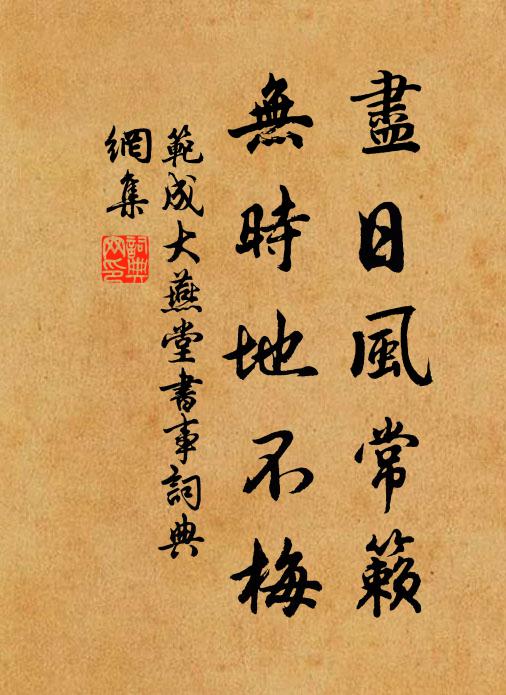 盡日風常籟
無時地不梅
範成大燕堂書事詞典
網集
詞典
网印